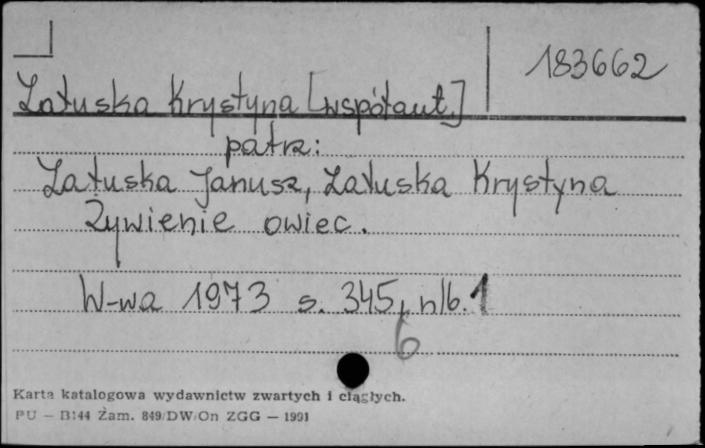 183662
Załuska Krystyna [współaut.]
patrz:
Załuska Janusz, Załuska Krystyna
Żywienie owiec.
W-wa 1973 s. 345, nlb. 1
6
Karta katalogowa wydawnictw zwartych i ciągłych.
PU — B144 Zam. 849/DW/On ZGG — 1991